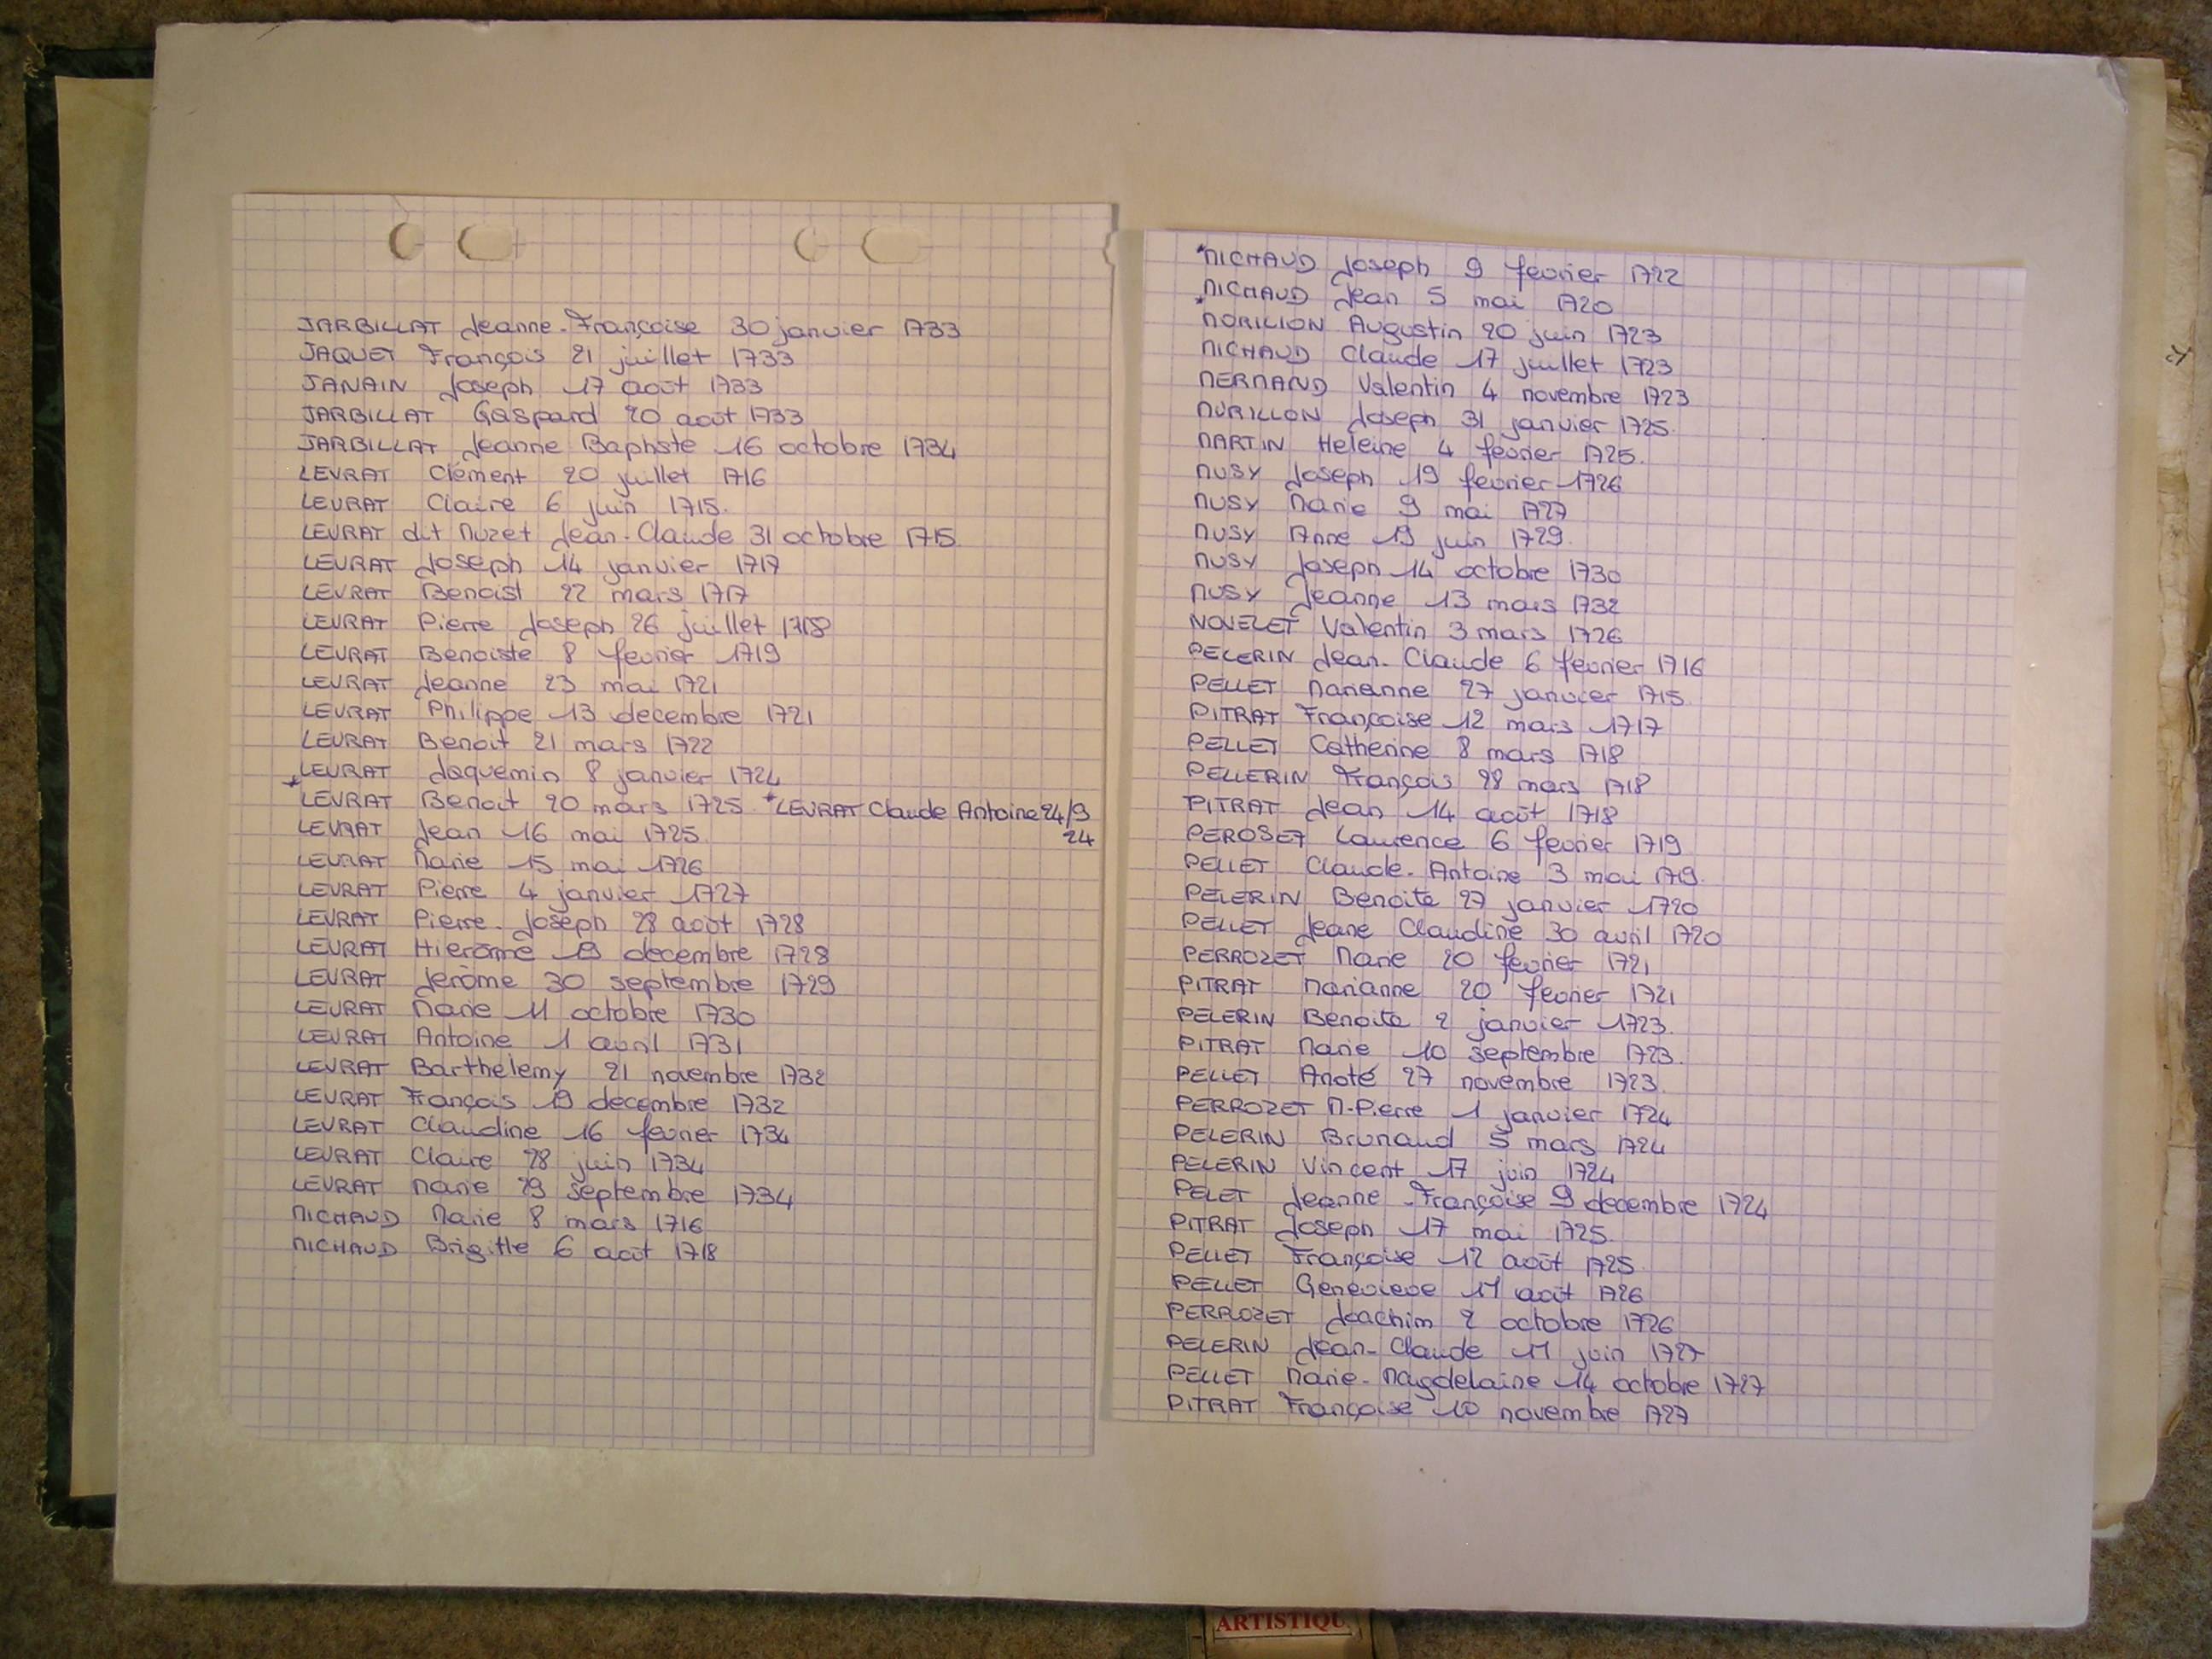 JARBILLAT Jeanne-Françoise 30 janvier 1733
JAQUET François 21 juillet 1733
JANAIN Joseph 17 août 1733
JARBILLAT Gaspard 20 août 1733
JARBILLAT Jeanne Baptiste 16 octobre 1734
LEVRAT Clément 20 juillet 1716
LEVRAT Claire 6 juin 1715.
LEVRAT dit Muzet Jean-Claude 31 octobre 1715
LEVRAT Joseph 14 janvier 1717
LEVRAT Benoist 22 mars 1717
LEVRAT Pierre Joseph 26 juillet 1718
LEVRAT Benoiste 8 fevrier 1719
LEVRAT Jeanne 23 mai 1721
LEVRAT Philippe 13 decembre 1721
LEVRAT Benoit 21 mars 1722
LEVRAT Jaquemin 8 janvier 1724
*LEVRAT Benoit 20 mars 1725. *LEVRAT Claude Antoine 24/9
24
LEVRAT Jean 16 mai 1725
LEVRAT Marie 15 mai 1726
LEVRAT Pierre 4 janvier 1727
LEVRAT Pierre-Joseph 28 août 1728
LEVRAT Hierôme 19 decembre 1728
LEVRAT Jerôme 30 septembre 1729
LEVRAT Marie 11 octobre 1730
LEVRAT Antoine 1 avril 1731
LEVRAT Barthélemy 21 novembre 1732
LEVRAT François 19 decembre 1732
LEVRAT Claudine 16 fevrier 1734
LEVRAT Claire 28 juin 1734
LEVRAT Marie 29 septembre 1734
MICHAUD Marie 8 mars 1716
MICHAUD Brigitte 6 août 1718
*MICHAUD Joseph 9 fevrier 1722
*MICHAUD Jean 5 mai 1720
MORILION Augustin 20 juin 1723
MICHAUD Claude 17 juillet 1723
MERMAND Valentin 4 novembre 1723
MURILLON Joseph 31 janvier 1725.
MARTIN Heleine 4 fevrier 1725.
MUSY Joseph 19 fevrier 1726
MUSY Marie 9 mai 1727
MUSY Anne 19 juin 1729.
MUSY Joseph 14 octobre 1730
MUSY Jeanne 13 mars 1732
NOVELET Valentin 3 mars 1726
PELERIN Jean-Claude 6 fevrier 1716
PELLET Marianne 27 janvier 1715
PITRAT Françoise 12 mars 1717
PELLET Catherine 8 mars 1718
PELLERIN François 28 mars 1718
PITRAT Jean 14 août 1718
PEROSET Laurence 6 fevrier 1719
PELLET Claude-Antoine 3 mai 1719.
PELERIN Benoite 27 janvier 1720
PELLET Jeane Claudine 30 avril 1720
PERROZET Marie 20 fevrier 1721
PITRAT Marianne 20 fevrier 1721
PELERIN Benoite 2 janvier 1723.
PITRAT Marie 10 septembre 1723.
PELLET Anoté 27 novembre 1723.
PERROZET M-Pierre 1 janvier 1724
PELERIN Brunaud 5 mars 1724
PELERIN Vincent 17 juin 1724
PELET Jeanne-Françoise 9 decembre 1724
PITRAT Joseph 17 mai 1725.
PELLET Françoise 12 août 1725
PELLET Genevieve 11 août 1726
PERROZET Joachim 2 octobre 1726
PELERIN Jean-Claude 11 juin 1727
PELLET Marie-Magdelaine 14 octobre 1727
PITRAT Françoise 10 novembre 1727
ARTISTIQU